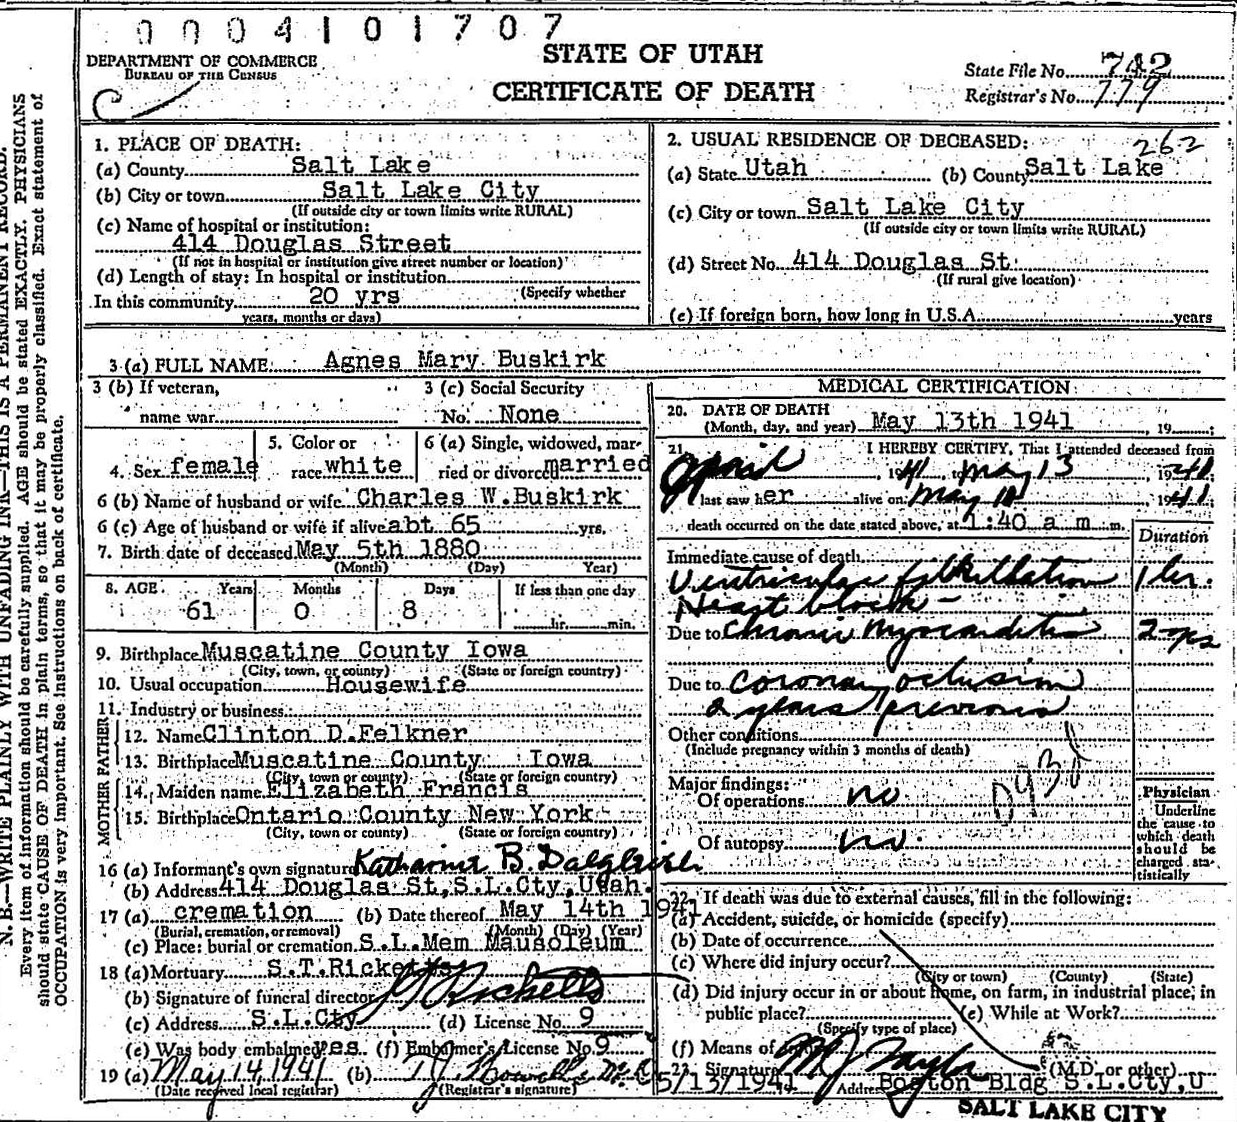 0004101707
DEPARTMENT OF COMMERCE
BUREAU OF THE CENSUS
STATE OF UTAH
CERTIFICATE OF DEATH
State File No. 742
Registrar's No. 779
N. B.—WRITE PLAINLY WITH UNFADING INK—THIS IS A PERMANENT RECORD.
Every item of information should be carefully supplied. AGE should be stated EXACTLY. PHYSICIANS
should state CAUSE OF DEATH in plain terms, so that it may be properly classified. Exact statement of
OCCUPATION is very important. See instructions on back of certificate.
1. PLACE OF DEATH:
(a) County Salt Lake
(b) City or town Salt Lake City
(If outside city or town limits write RURAL)
(c) Name of hospital or institution:
414 Douglas Street
(If not in hospital or institution give street number or location)
(d) Length of stay: In hospital or institution
(Specify whether
In this community 20 yrs
years, months or days)
2. USUAL RESIDENCE OF DECEASED: 262
(a) State Utah (b) County Salt Lake
(c) City or town Salt Lake City
(If outside city or town limits write RURAL)
(d) Street No. 414 Douglas St.
(If rural give location)
(e) If foreign born, how long in U.S.A. years
3 (a) FULL NAME: Agnes Mary Buskirk
3 (b) If veteran,
name war
3 (c) Social Security
No. None
4. Sex female
5. Color or
race white
6 (a) Single, widowed, mar-
ried or divorced married
6 (b) Name of husband or wife Charles W.Buskirk
6 (c) Age of husband or wife if alive abt 65 yrs.
7. Birth date of deceased May 5th 1880
(Month) (Day) Year)
8. AGE Years Months Days If less than one day
61 0 8 hr. min.
9. Birthplace Muscatine County Iowa
(City, town, or county) (State or foreign country)
10. Usual occupation Housewife
11. Industry or business
FATHER
12. Name Clinton D.Felkner
13. Birthplace Muscatine County Iowa
(City, town or county) (State or foreign country)
MOTHER
14. Maiden name Elizabeth Francis
15. Birthplace Ontario County New York
(City, town or county) (State or foreign country)
16 (a) Informant's own signature Katharine B. Dalgleish
(b) Address 414 Douglas St,S.L.Cty,Utah.
17 (a) cremation (b) Date thereof May 14th 1941
(Burial, cremation, or removal) (Month) (Day) (Year)
(c) Place: burial or cremation S.L.Mem Mausoleum
18 (a) Mortuary S.T.Ricketts
(b) Signature of funeral director Ricketts
(c) Address S.L.Cty (d) License No. 9
(e) Was body embalmed yes (f) Embalmer's License No. 9
19 (a) May 14, 1941 (b)
(Date received local registrar) (Registrar's signature)
MEDICAL CERTIFICATION
20. DATE OF DEATH
(Month, day, and year) May 13th 1941, 19
21. I HEREBY CERTIFY, That I attended deceased from
April, 1941 to May 13, 1941
I last saw her alive on May 1941
death occurred on the date stated above, at 1:40 a m m.
Duration
Immediate cause of death
Ventricular fibrillation 1 hr.
Heart block -
Due to Chronic Myocarditis 2 yrs
Due to Coronary oclusion
2 years previous
Other conditions
(Include pregnancy within 3 months of death)
Major findings:
Of operations no
Of autopsy no.
Physician
Underline
the cause to
which death
should be
charged sta-
tistically
22. If death was due to external causes, fill in the following:
(a) Accident, suicide, or homicide (specify)
(b) Date of occurrence
(c) Where did injury occur?
(City or town) (County) (State)
(d) Did injury occur in or about home, on farm, in industrial place, in
public place? (e) While at Work?
(Specify type of place)
(f) Means of
23. Signature M J Taylor (M.D. or other)
5/13/1941 Address Boston Bldg S.L.Cty,U
SALT LAKE CITY